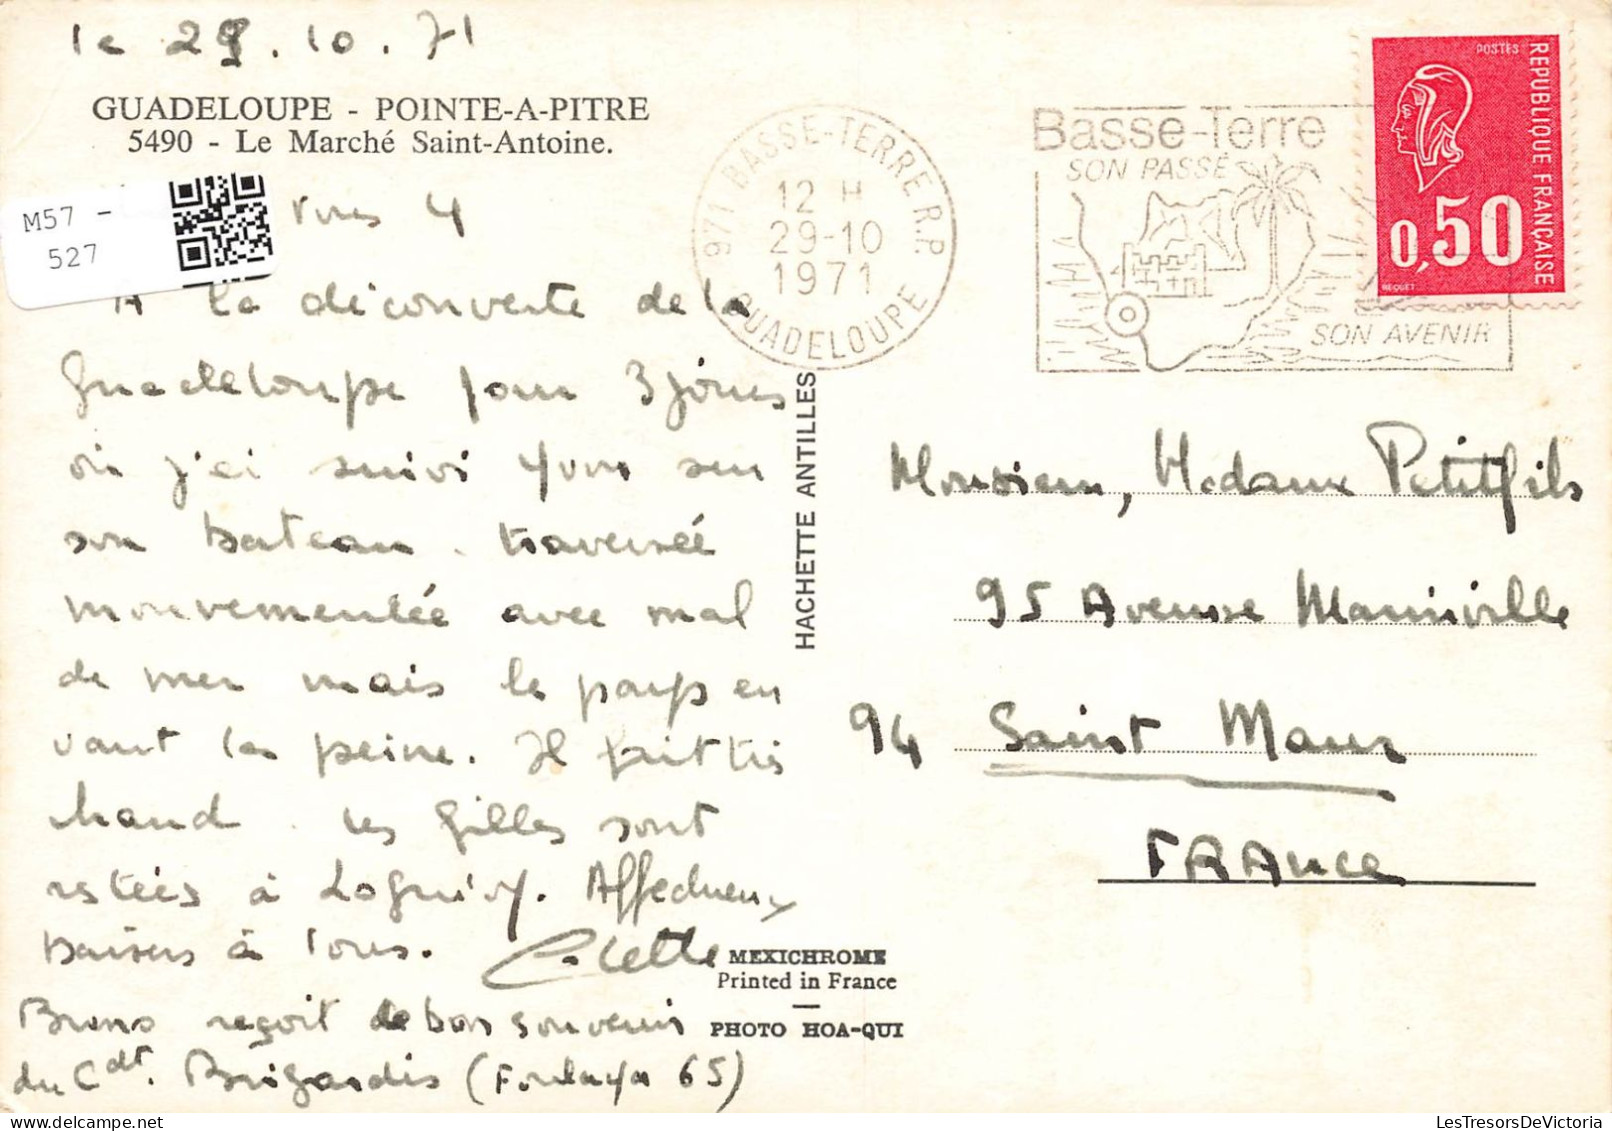 le 29.10.71
GUADELOUPE - POINTE-A-PITRE
5490 - Le Marché Saint-Antoine.
M57 -
527
4
A la découverte de la
Guadeloupe pour 3 jours
où j'ai suivi Yvon sur
son bateau. traversée
mouvementée avec mal
de mer mais le pays en
vaut la peine. Il fait très
chaud. Les Gilles sont
restées à Loguivy. Affectueux
baisers à Tous. Colette
Bruno reçoit de bons souvenirs
du Cdt. Brigardis ( 65)
971 BASSE-TERRE R.P.
12 H
29-10
1971
GUADELOUPE
Basse-Terre
SON PASSÉ
SON AVENIR
POSTES
REPUBLIQUE FRANÇAISE
0,50
BEQUET
HACHETTE ANTILLES
Monsieur, Madame Petitfils
95 Avenue Marinville
94 Saint Maur
FRANCE
MEXICHROME
Printed in France
PHOTO HOA-QUI
LesTresorsDeVictoria.com